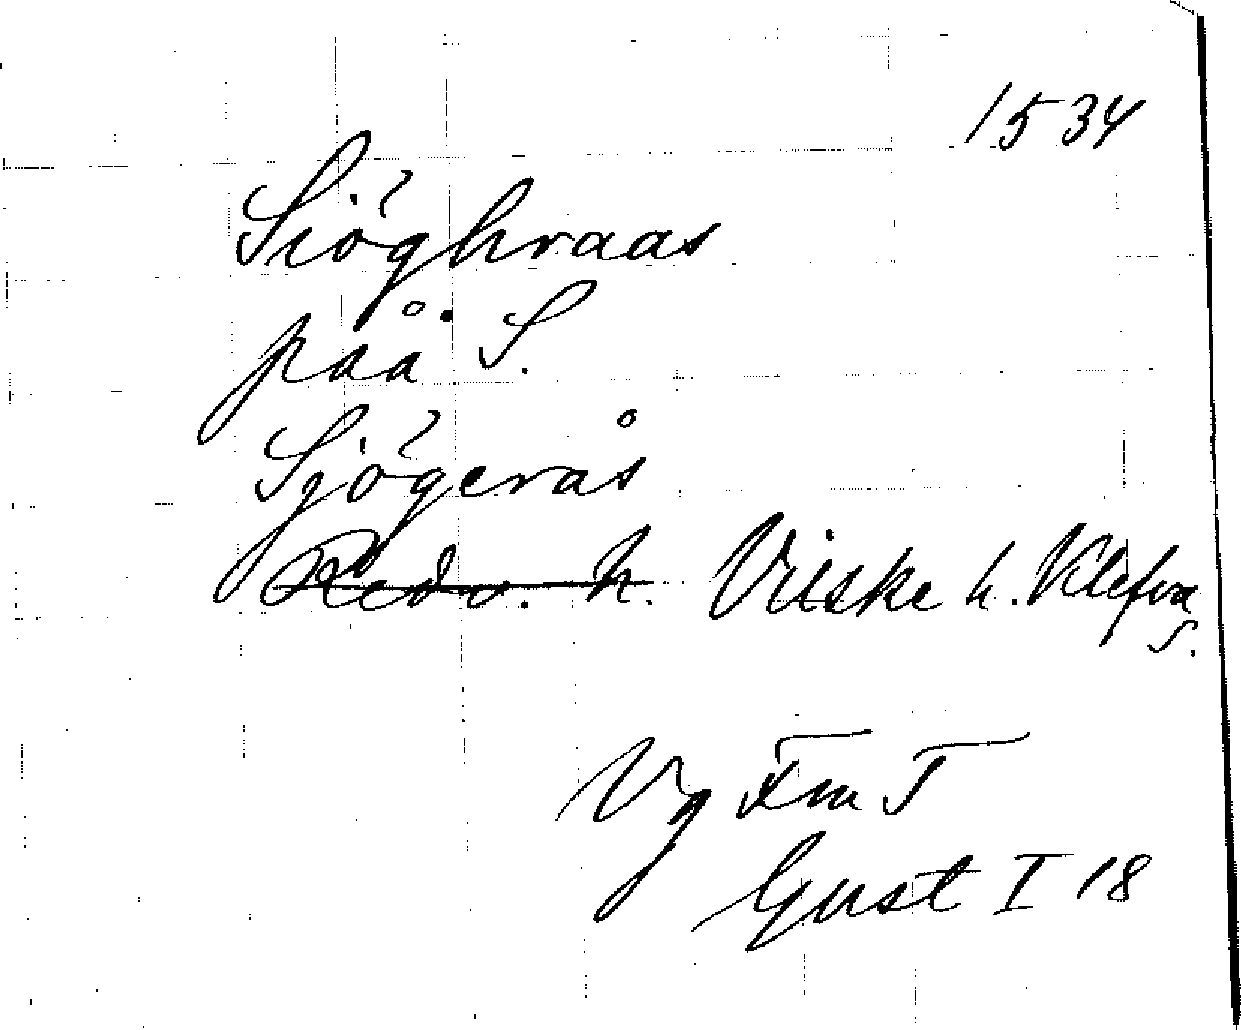 1534
Siöghraas
på S.
Sjögerås
Redv. h. Viske h. Klefva
s.
Vg Fm T
Gust I 18